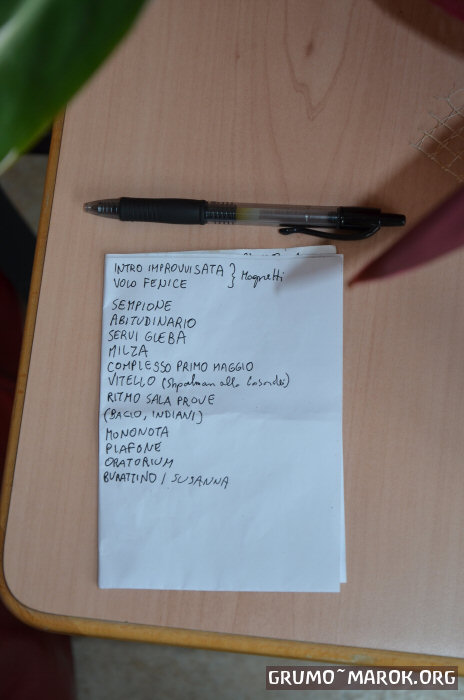 INTRO IMPROVVISATA
VOLO FENICE } Magnetti
SEMPIONE
ABITUDINARIO
SERVI GLEBA
MILZA
COMPLESSO PRIMO MAGGIO
VITELLO (alla
RITMO SALA PROVE
(BACIO, INDIANI)
MONONOTA
PLAFONE
ORATORIUM
BURATTINO / SUSANNA
GRUMO~MAROK.ORG